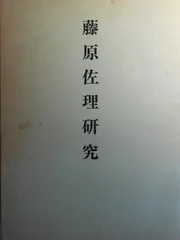 藤原佐理研究